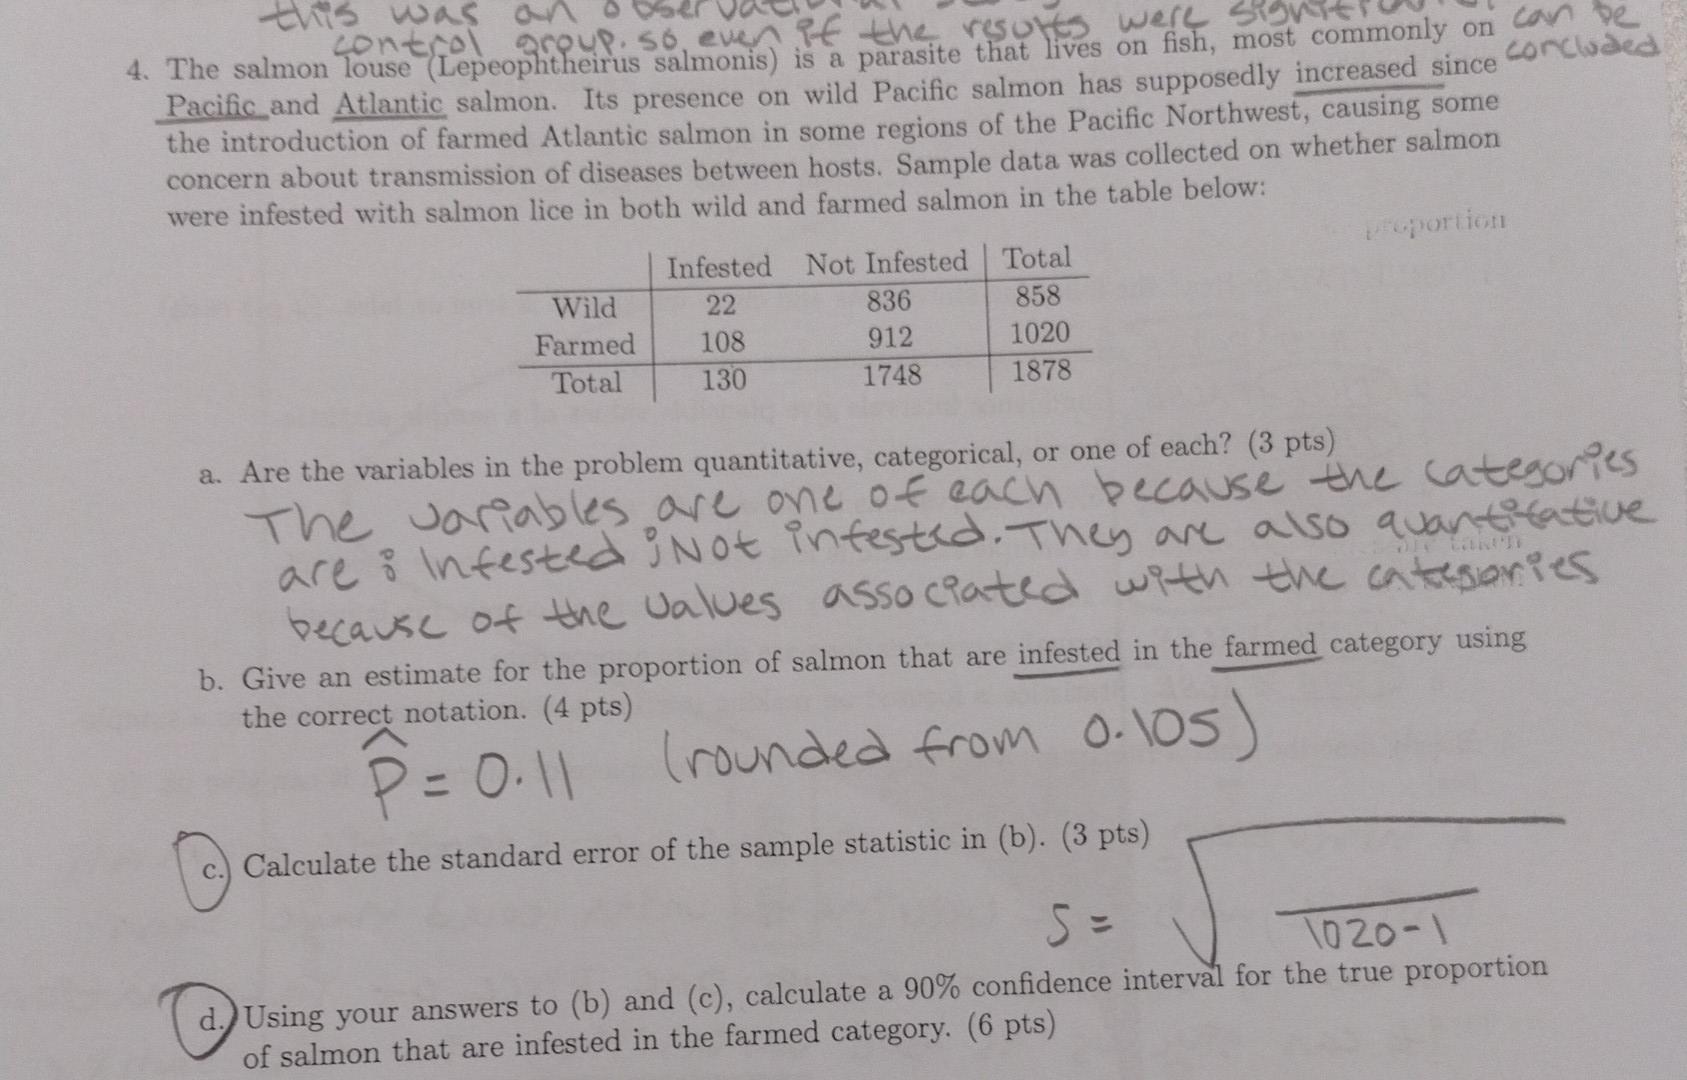 this was an
control group. so even if the results were can be
concluded
4. The salmon louse (Lepeophtheirus salmonis) is a parasite that lives on fish, most commonly on
Pacific and Atlantic salmon. Its presence on wild Pacific salmon has supposedly increased since
the introduction of farmed Atlantic salmon in some regions of the Pacific Northwest, causing some
concern about transmission of diseases between hosts. Sample data was collected on whether salmon
were infested with salmon lice in both wild and farmed salmon in the table below:
proportion
Infested Not Infested Total
Wild 22 836 858
Farmed 108 912 1020
Total 130 1748 1878
a. Are the variables in the problem quantitative, categorical, or one of each? (3 pts)
The variables are one of each because the categories
are : Infested ; Not infested. They are also quantitative
because of the values associated with the categories
b. Give an estimate for the proportion of salmon that are infested in the farmed category using
the correct notation. (4 pts)
p̂ = 0.11 (rounded from 0.105)
c. Calculate the standard error of the sample statistic in (b). (3 pts)
S = √ 1020-1
d. Using your answers to (b) and (c), calculate a 90% confidence interval for the true proportion
of salmon that are infested in the farmed category. (6 pts)